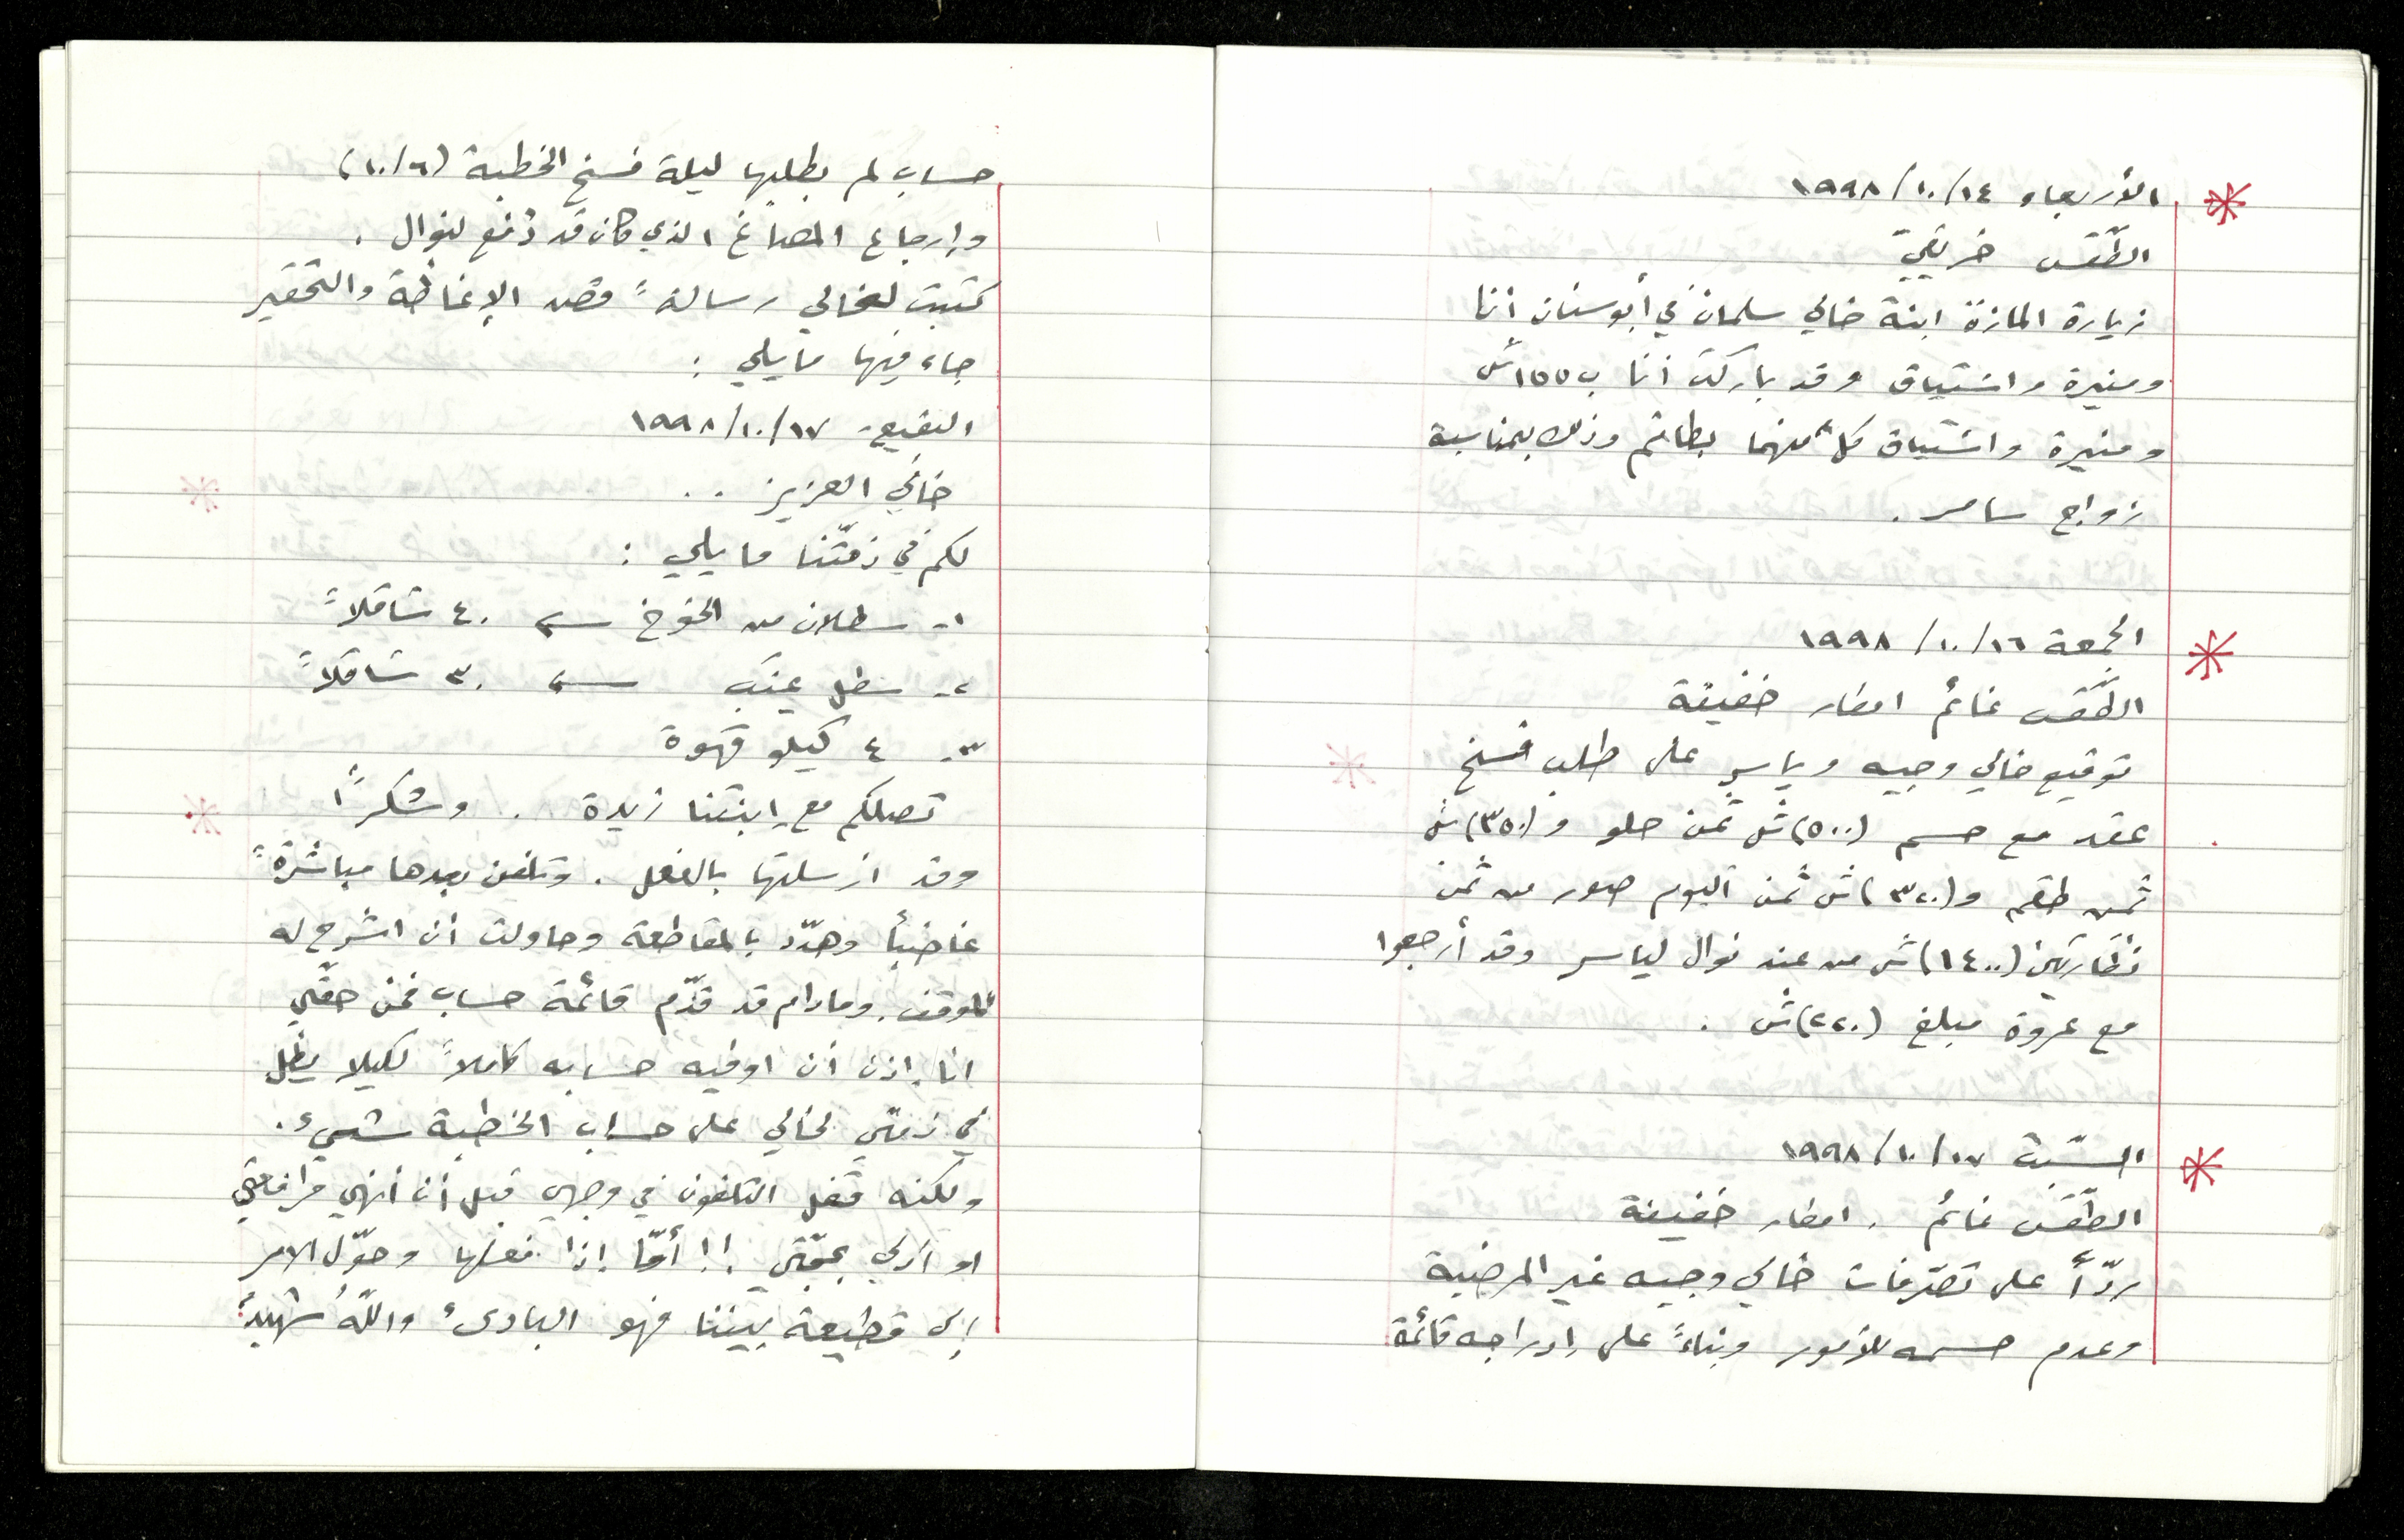 الأربعاء ١٤/١٠/١٩٩٨
الطّقس خريفيّ
زيارة المازة ابنة خالي سلمان في أبوسنان أنا
ومنيرة واشتياق وقد باركت أنا ب ١٥٥ش
ومنيرة واشتياق كلٌ منهما بطاقم وذلك بمناسبة
زواج سامر.
الجمعة ١٦/١٠/١٩٩٨
الطّقس غائم امطار خفيفة
توقيع خالي وجيه وياسر على طلب فسخ
عقد مع حسم (٥٠٠)ش ثمن حلو و(٣٥٠)ش
ثمن طقم و(٣٢٠)ش ثمن البوم صور من ثمن
نظّارتين (١٤٠٠)ش من عند نوال لياسر وقد أرجعوا
مع عروة مبلغ (٢٢٠)ش.
السّبت ١٧/١٠/١٩٩٨
الطّقس غائم. امطار خفيفة
ردّاً على تصرّفات خالي وجيه غير المرضية
وعدم حسمه للأمور وبناءً على إدراجه قائمة
حساب لم يطلبها ليلة فسخ الخطبة (١٠/٦)
وإرجاع المصاغ الذي كان قد دُفع لنوال.
كتبت لخالي رسالةً قصد الإغاظة والتحقير
جاء فيها ما يلي:
البقيعة ١٧/١٠/١٩٩٨
خالي العزيز ..
لكم في ذمّتنا ما يلي:
١- سطلان من الخوخ ← ٤٠ شاقلاً
٢- سطل عنب ← ٣٠ شاقلاً
٣- ٤ كيلو قهوة
تصلكم مع ابنتنا زبدة. وشكراً
وقد ارسلتها بالفعل. وتلفن بعدها مباشرةً
غاضباً وهدّد بالمقاطعة وحاولت أن اشرح له
الموقف. وما دام قد قدّم قائمة حساب فمن حقّي
انا إذن أن اوفيه حسابه كاملاً لكيلا يظل
في ذمّتي لخالي على حساب الخطبة شيء.
ولكنه قفل التلفون في وجهي قبل أن أنهي مرافعتي
او أدلي بحجّتي!! أمّا إذا فعلها وحوّل الامر
إلى قطيعة بيننا فهو البادىء واللّهُ شهيدٌ